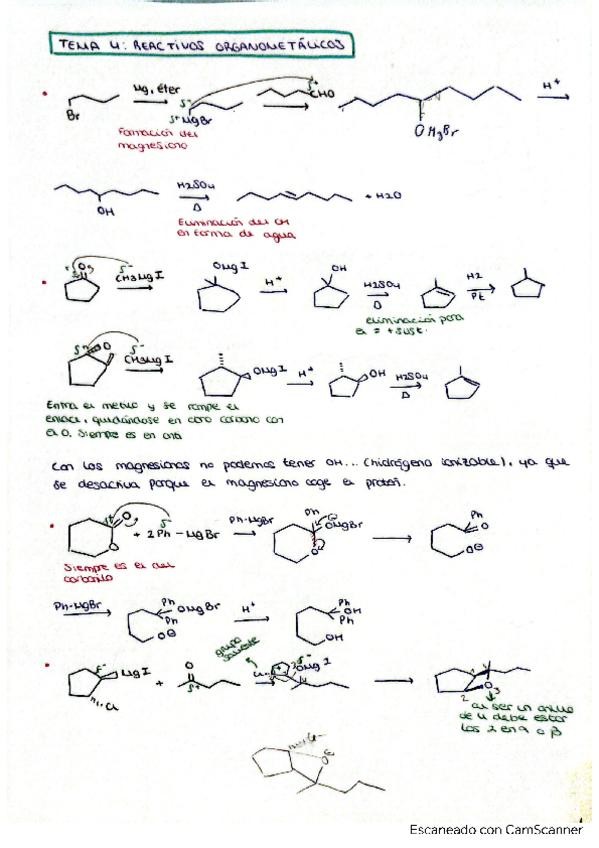 TEMA 4: REACTIVOS ORGANOMETÁLICOS
Br
Mg, éter
δ-
δ+ MgBr
δ+
CHO
OMgBr
H+
Formación del
magnesiano
OH
H2SO4
Δ
+ H2O
Eliminación del OH
en forma de agua
O
δ-
CH3MgI
OMgI
H+
OH
H2SO4
Δ
H2
Pt
eliminación para
el = + sust.
δ+
O
δ-
CH3MgI
OMgI
H+
OH
H2SO4
Δ
Entra el metilo y se rompe el
enlace, quedándose en otro carbono con
el O. Siempre es en anti
Con los magnesianos no podemos tener OH... (hidrógeno ionizable), ya que
se desactiva porque el magnesiano coge el protón.
O
O
+ 2 Ph - MgBr
δ-
Ph-MgBr
Ph
OMgBr
O
Ph
O
O⊖
Siempre es el del
carbonilo
Ph-MgBr
Ph
OMgBr
Ph
O⊖
H+
Ph
OH
Ph
OH
δ-
MgI
Cl
+
O
δ+
grupo
saliente
OMgI
O
2
3
al ser un anillo
de 4 debe estar
los 2 en α o β
Escaneado con CamScanner